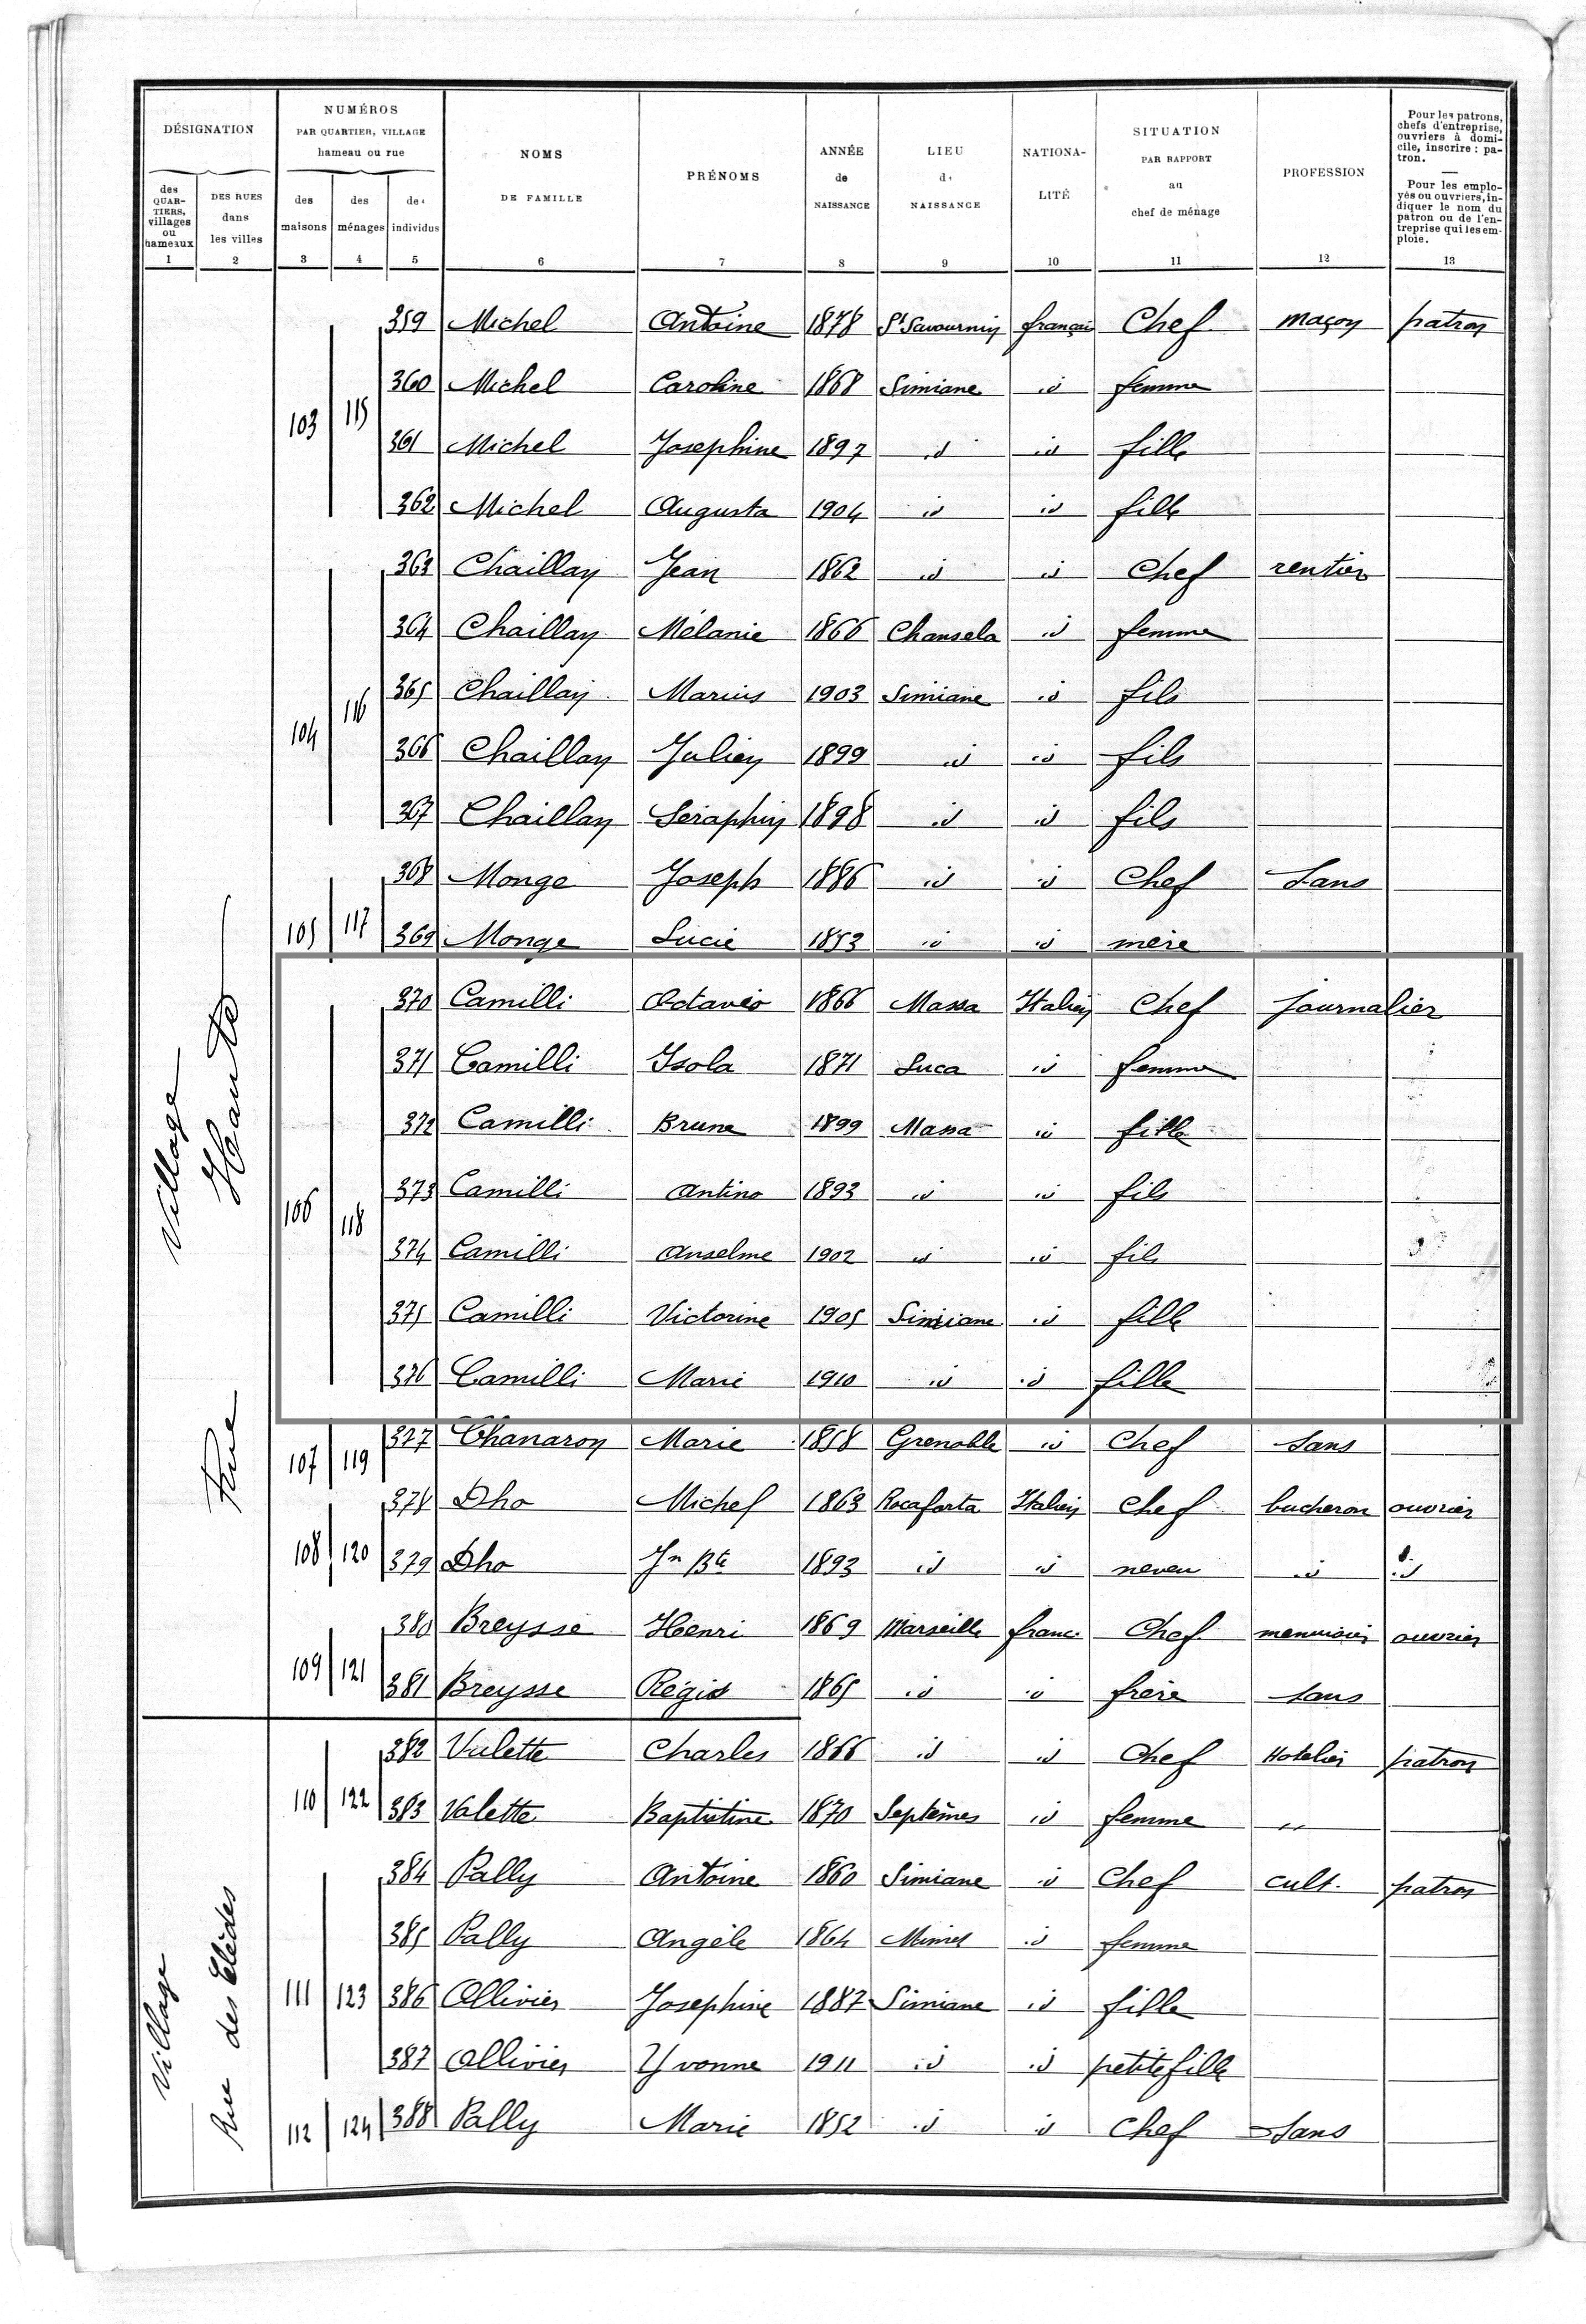 DÉSIGNATION
NUMÉROS
PAR QUARTIER, VILLAGE
hameau ou rue
des QUARTIERS, villages ou hameaux
DES RUES dans les villes
des maisons
des ménages
des individus
NOMS DE FAMILLE
PRÉNOMS
ANNÉE de NAISSANCE
LIEU de NAISSANCE
NATIONALITÉ
SITUATION PAR RAPPORT au chef de ménage
PROFESSION
Pour les patrons, chefs d'entreprise, ouvriers à domicile, inscrire : patron.
Pour les employés ou ouvriers, indiquer le nom du patron ou de l'entreprise qui les emploie.
1 2 3 4 5 6 7 8 9 10 11 12 13
Village
Rue Haute
103 115
359 Michel Antoine 1878 St Savournin français Chef maçon patron
360 Michel Caroline 1868 Simiane id femme
361 Michel Josephine 1897 id id fille
362 Michel Augusta 1904 id id fille
104 116
363 Chaillan Jean 1862 id id Chef rentier
364 Chaillan Mélanie 1866 Chansela id femme
365 Chaillan Marius 1903 Simiane id fils
366 Chaillan Julien 1899 id id fils
367 Chaillan Séraphin 1898 id id fils
105 117
368 Monge Joseph 1886 id id Chef Sans
369 Monge Lucie 1853 id id mère
106 118
370 Camilli Octavio 1866 Massa Italien Chef journalier
371 Camilli Isola 1871 Luca id femme
372 Camilli Brune 1899 Massa id fille
373 Camilli Antino 1893 id id fils
374 Camilli Anselme 1902 id id fils
375 Camilli Victorine 1905 Simiane id fille
376 Camilli Marie 1910 id id fille
107 119
377 Chanaron Marie 1858 Grenoble id Chef Sans
108 120
378 Dho Michel 1863 Rocaforta Italien Chef bucheron ouvrier
379 Dho Jn Bte 1893 id id neveu id id
109 121
380 Breysse Henri 1869 Marseille franc. Chef menuisier ouvrier
381 Breysse Régis 1865 id id frère Sans
Village
Rue des Elèdes
110 122
382 Valette Charles 1866 id id Chef Hotelier patron
383 Valette Baptistine 1870 Septèmes id femme "
111 123
384 Pally Antoine 1860 Simiane id Chef cult. patron
385 Pally Angèle 1864 Mimet id femme
386 Ollivier Josephine 1887 Simiane id fille
387 Ollivier Yvonne 1911 id id petite fille
112 124
388 Pally Marie 1852 id id Chef Sans